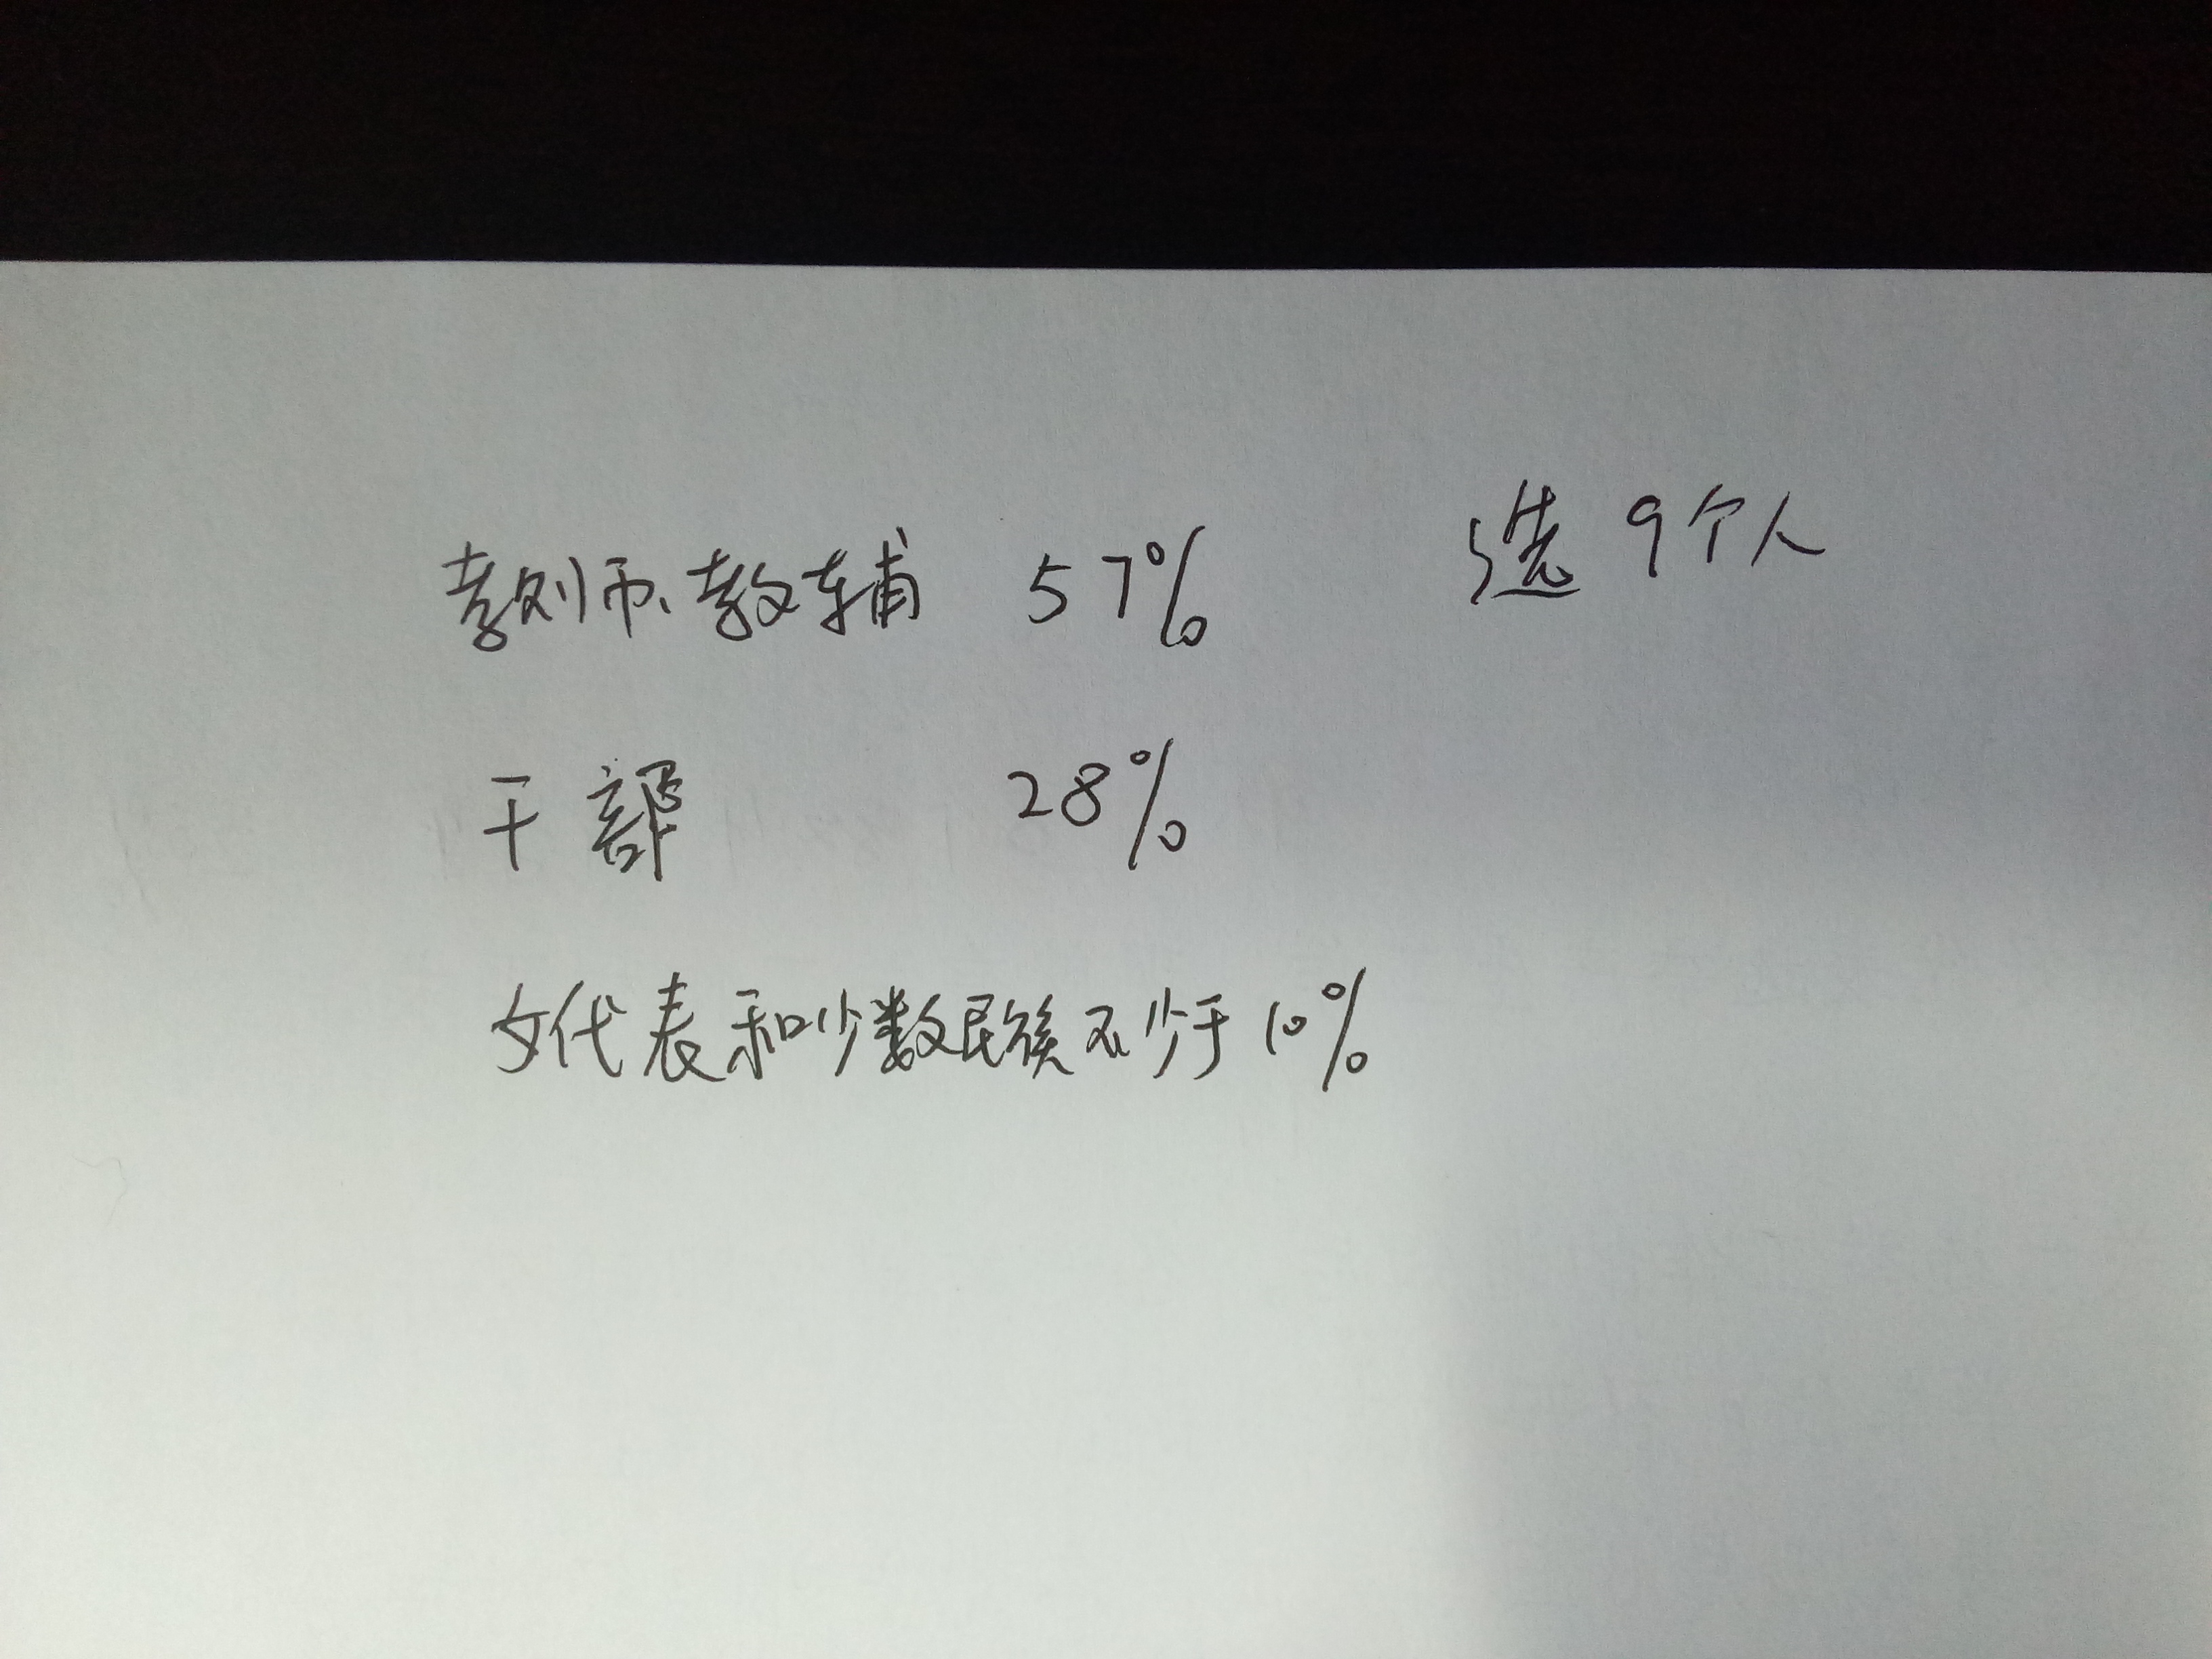 教师、教辅 57% 选9个人
干部 28%
女代表和少数民族不少于10%